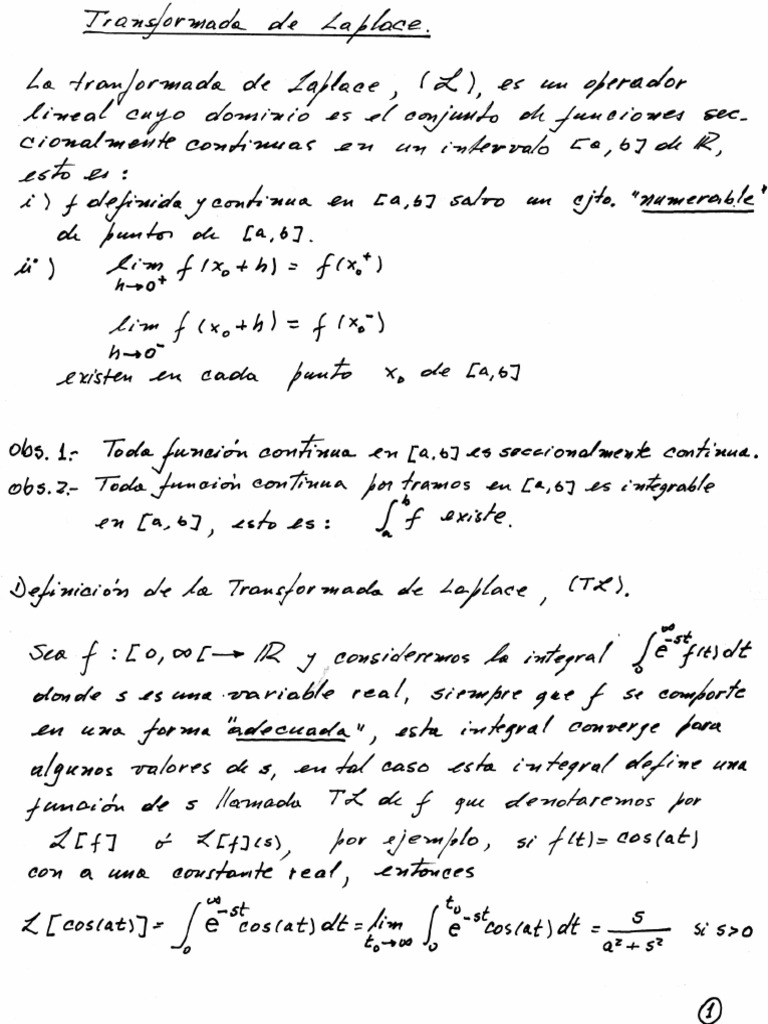 Transformada de Laplace.
La tranformada de Laplace, (ℒ), es un operador
lineal cuyo dominio es el conjunto de funciones sec-
cionalmente continuas en un intervalo [a,b] de ℝ,
esto es:
i) f definida y continua en [a,b] salvo un cjto. "numerable"
de puntos de [a,b].
ii) lim f(x₀+h) = f(x₀⁺)
h→0⁺
lim f(x₀+h) = f(x₀⁻)
h→0⁻
existen en cada punto x₀ de [a,b]
Obs. 1.- Toda función continua en [a,b] es seccionalmente continua.
Obs. 2.- Toda función continua por tramos en [a,b] es integrable
en [a,b], esto es: ∫ₐᵇ f existe.
Definición de la Transformada de Laplace, (Tℒ).
Sea f: [0,∞[ → ℝ y consideremos la integral ∫₀^∞ e^{-st} f(t)dt
donde s es una variable real, siempre que f se comporte
en una forma "adecuada", esta integral converge para
algunos valores de s, en tal caso esta integral define una
función de s llamada Tℒ de f que denotaremos por
ℒ[f] ó ℒ[f](s), por ejemplo, si f(t) = cos(at)
con a una constante real, entonces
ℒ[cos(at)] = ∫₀^∞ e^{-st} cos(at)dt = lim_{t₀→∞} ∫₀^{t₀} e^{-st} cos(at)dt = s/(a²+s²) si s>0
1